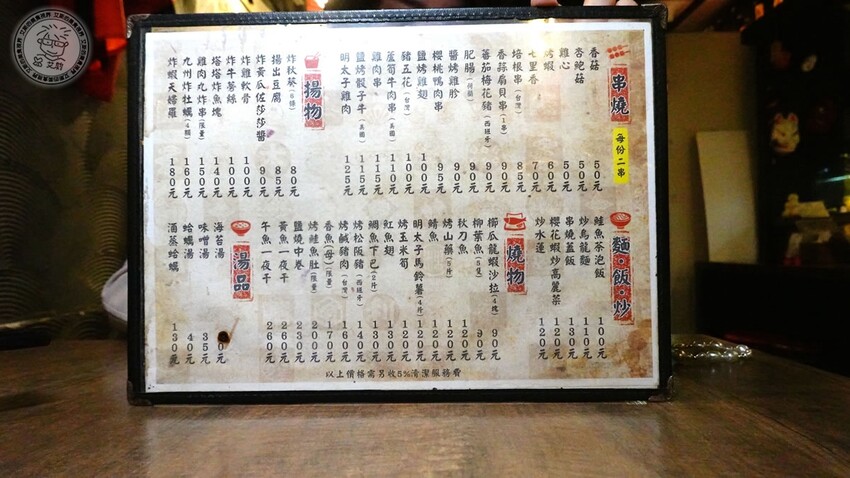 串燒
每份二串
香菇 50元
杏鮑菇 50元
雞心 50元
烤蝦 60元
七里香 70元
培根串(台灣) 85元
香蒜扇貝串(1串) 90元
蕃茄梅花豬(西班牙) 90元
肥腸 90元
醬烤雞胗 90元
櫻桃鴨肉串 95元
鹽烤雞翅 100元
豬五花(台灣) 100元
蘆筍牛肉串(美國) 110元
雞肉串 115元
鹽烤骰子牛(美國) 115元
明太子雞肉 125元
揚物
炸秋葵(6條) 80元
揚出豆腐 85元
炸黃瓜佐莎莎醬 90元
炸雞軟骨 100元
炸牛蒡絲 100元
塔塔炸魚塊 140元
雞肉丸炸串(限量) 150元
九州炸牡蠣(4顆) 160元
炸蝦天婦羅 180元
麵‧飯‧炒
鮭魚茶泡飯 100元
炒烏龍麵 110元
串燒蓋飯 130元
櫻花蝦炒高麗菜 120元
炒水蓮 120元
燒物
櫛瓜龍蝦沙拉(4塊) 90元
柳葉魚(5隻) 90元
秋刀魚 120元
烤山藥(5片) 120元
鯖魚 120元
明太子馬鈴薯(4片) 120元
烤玉米筍 120元
魟魚翅 130元
鯛魚下巴(2片) 130元
烤松阪豬(西班牙) 140元
烤鹹豬肉(台灣) 160元
香魚(母)(限量) 170元
烤鱣魚肚(限量) 200元
鹽燒中卷 230元
黃魚一夜干 260元
午魚一夜干 260元
湯品
海苔湯
味噌湯 35元
蛤蠣湯 40元
酒蒸蛤蠣 130元
以上價格需另收5%清潔服務費